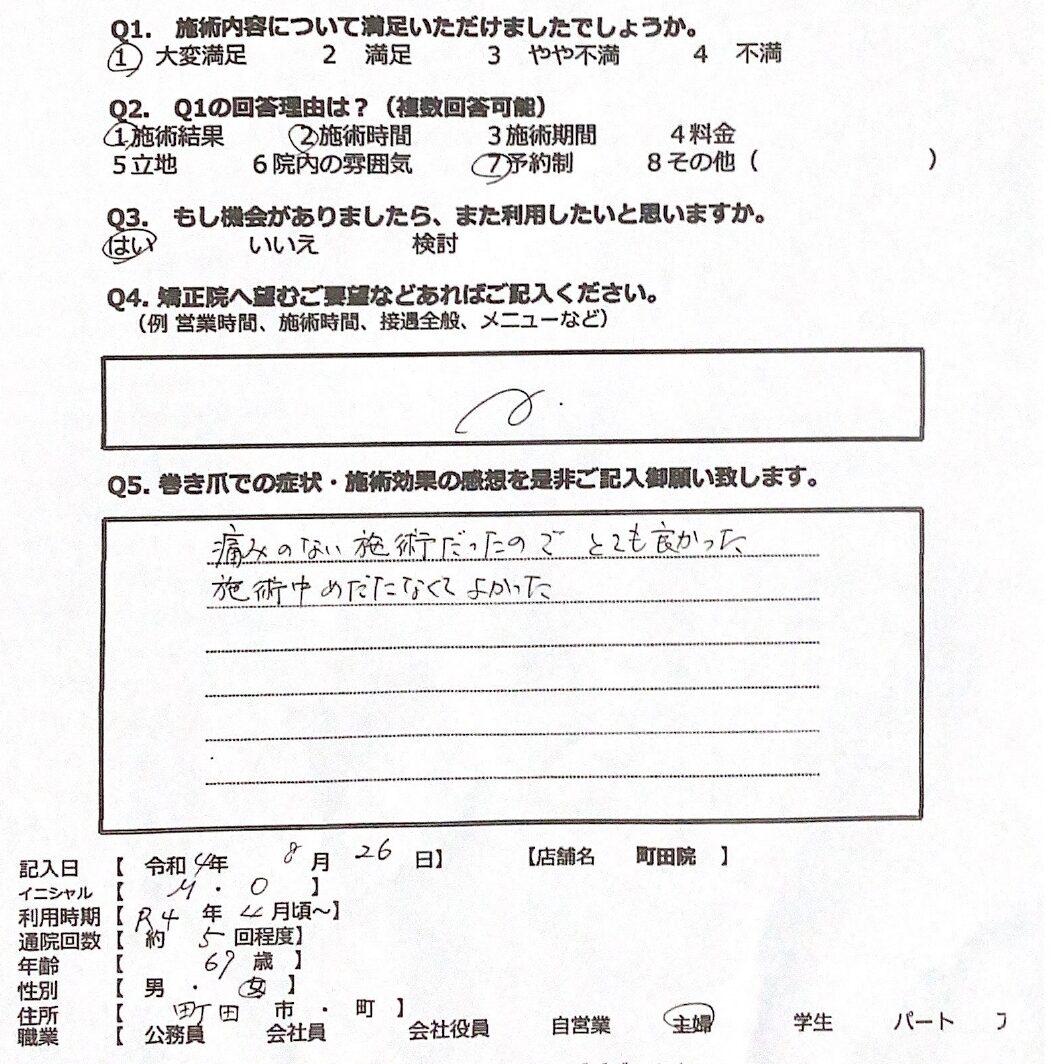 Q1. 施術内容について満足いただけましたでしょうか。
1 大変満足 2 満足 3 やや不満 4 不満
Q2. Q1の回答理由は？（複数回答可能）
1施術結果 2施術時間 3施術期間 4料金
5立地 6院内の雰囲気 7予約制 8その他（ ）
Q3. もし機会がありましたら、また利用したいと思いますか。
はい いいえ 検討
Q4. 矯正院へ望むご要望などあればご記入ください。
（例 営業時間、施術時間、接遇全般、メニューなど）
Q5. 巻き爪での症状・施術効果の感想を是非ご記入御願い致します。
痛みのない施術だったので とても良かった
施術中めだたなくてよかった
記入日 【 令和4年 8月 26日】 【店舗名 町田院 】
イニシャル 【 M・O 】
利用時期【 R4年 4月頃～】
通院回数【 約 5回程度】
年齢 【 69歳 】
性別 【 男・女 】
住所 【 町田 市・町 】
職業 【 公務員 会社員 会社役員 自営業 主婦 学生 パート